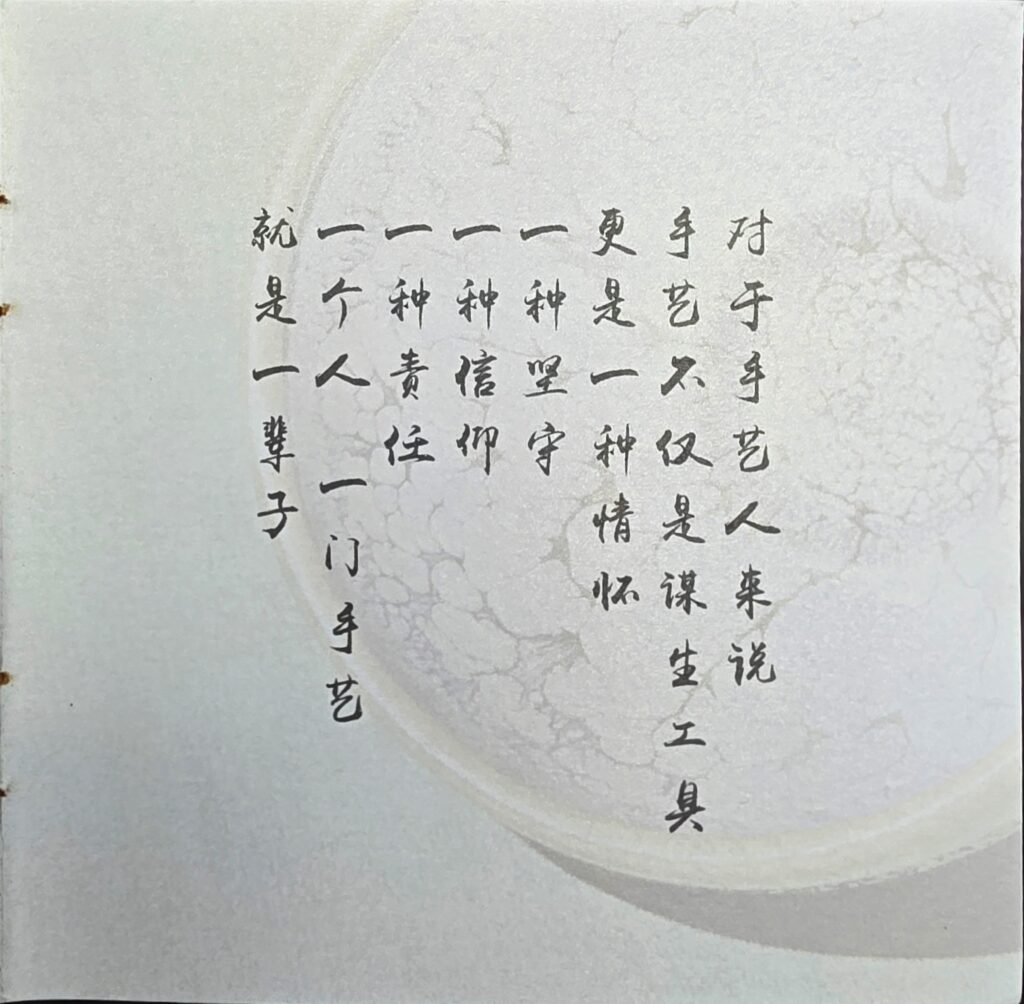 对于手艺人来说
手艺不仅是谋生工具
更是一种情怀
一种坚守
一种信仰
一种责任
一个人 一门手艺
就是一辈子